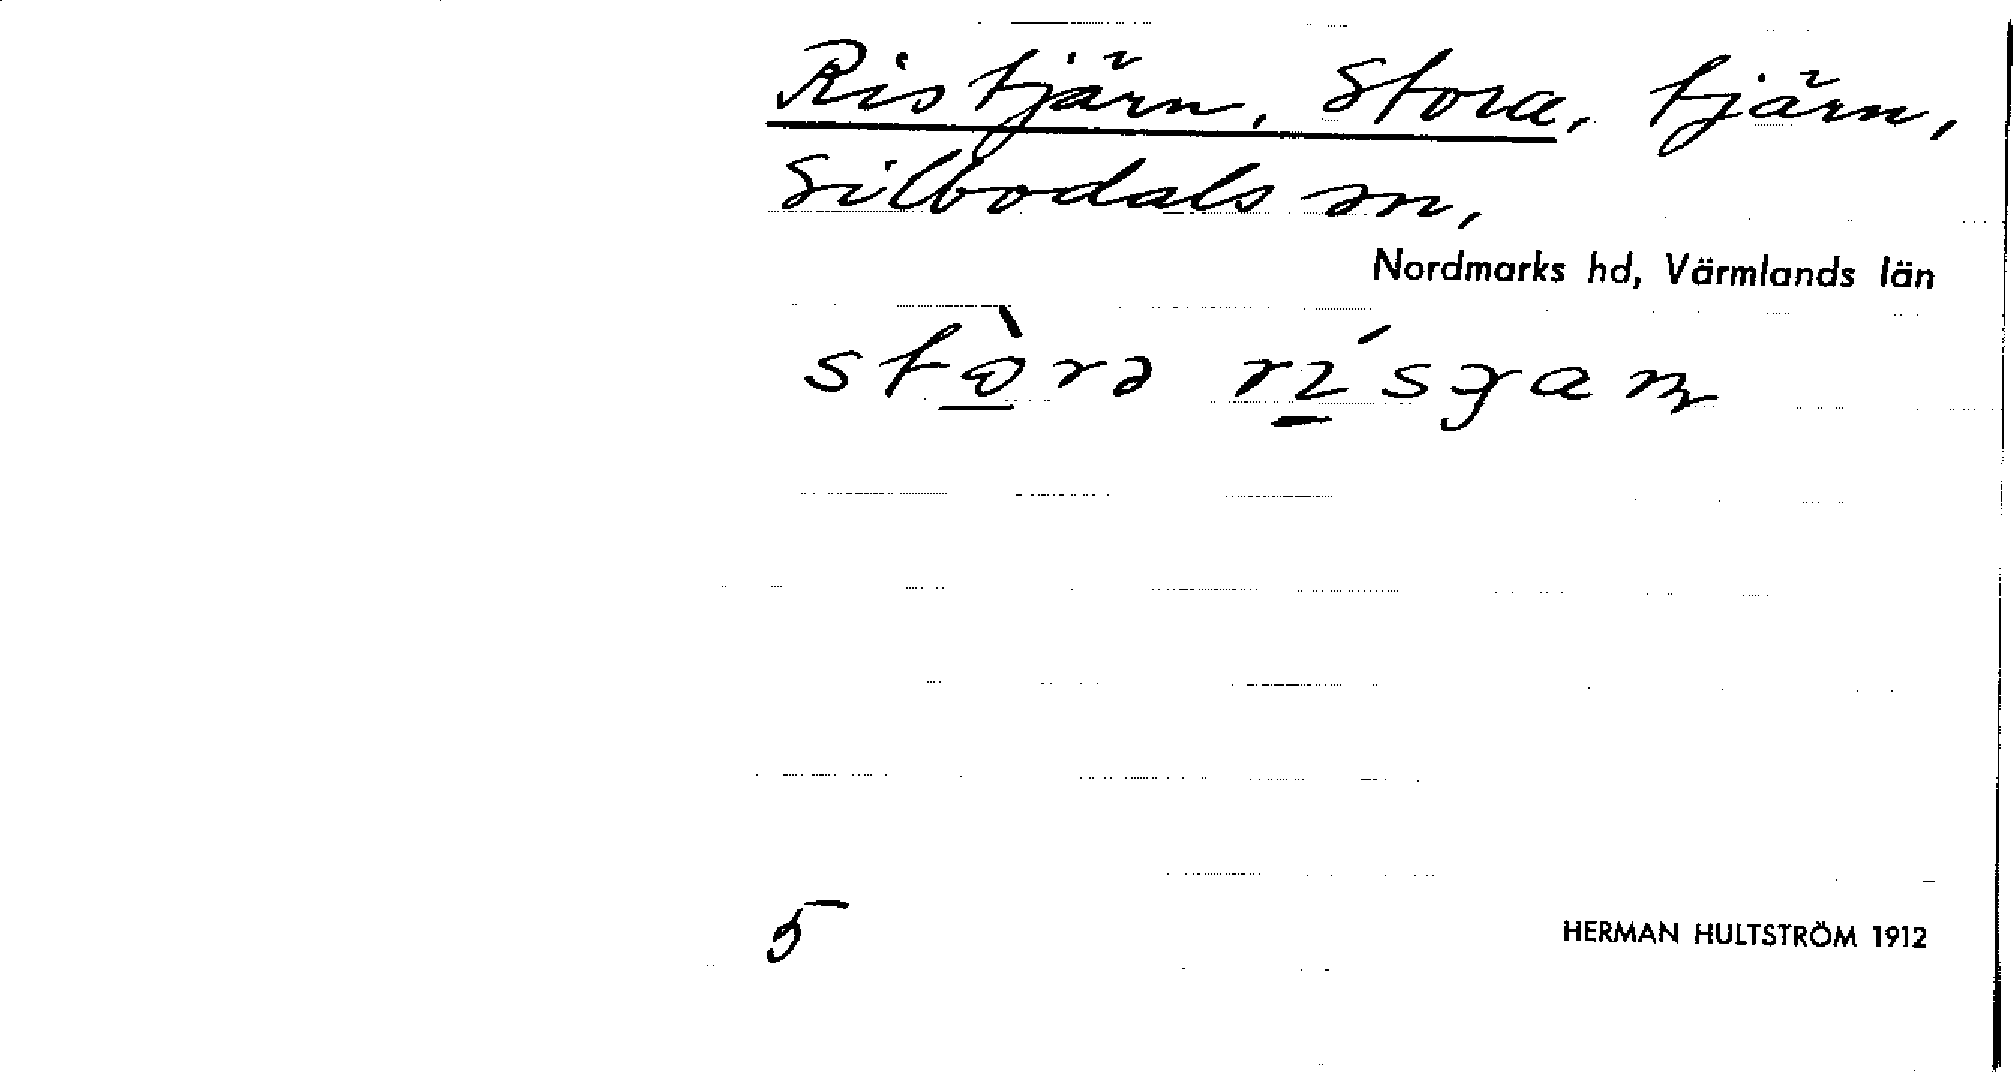 Ristjärn, Stora, tjärn,
Silbodals sn,
Nordmarks hd, Värmlands län
stò̱rə rı̱́sɟaɳ
5
HERMAN HULTSTRÖM 1912